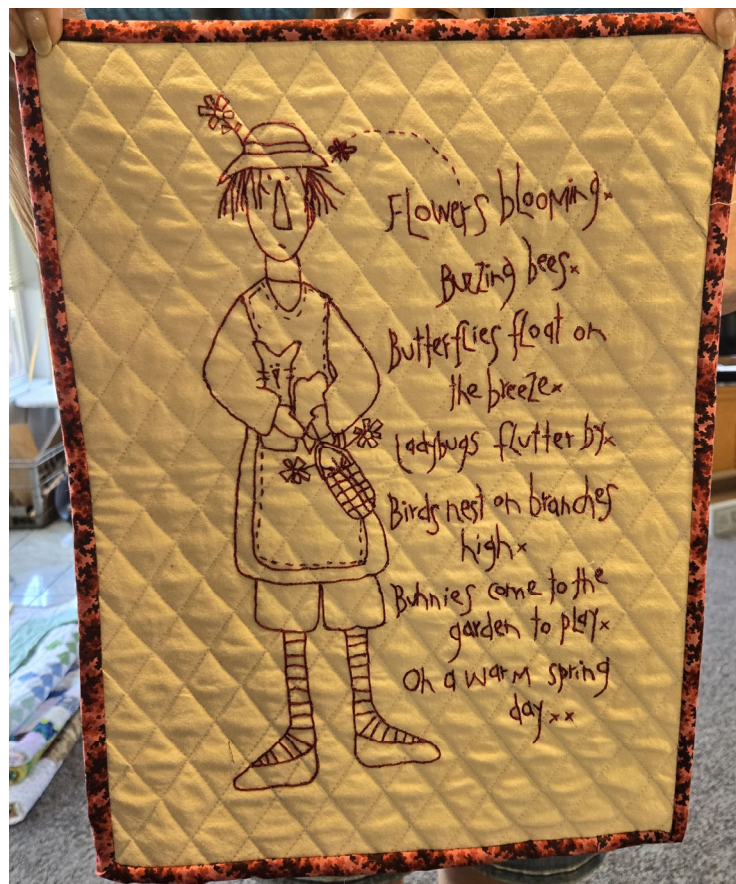 Flowers blooming x
Buzzing bees x
Butterflies float on
the breeze x
Ladybugs flutter by x
Birds nest on branches
high x
Bunnies come to the
garden to play x
On a warm spring
day x x